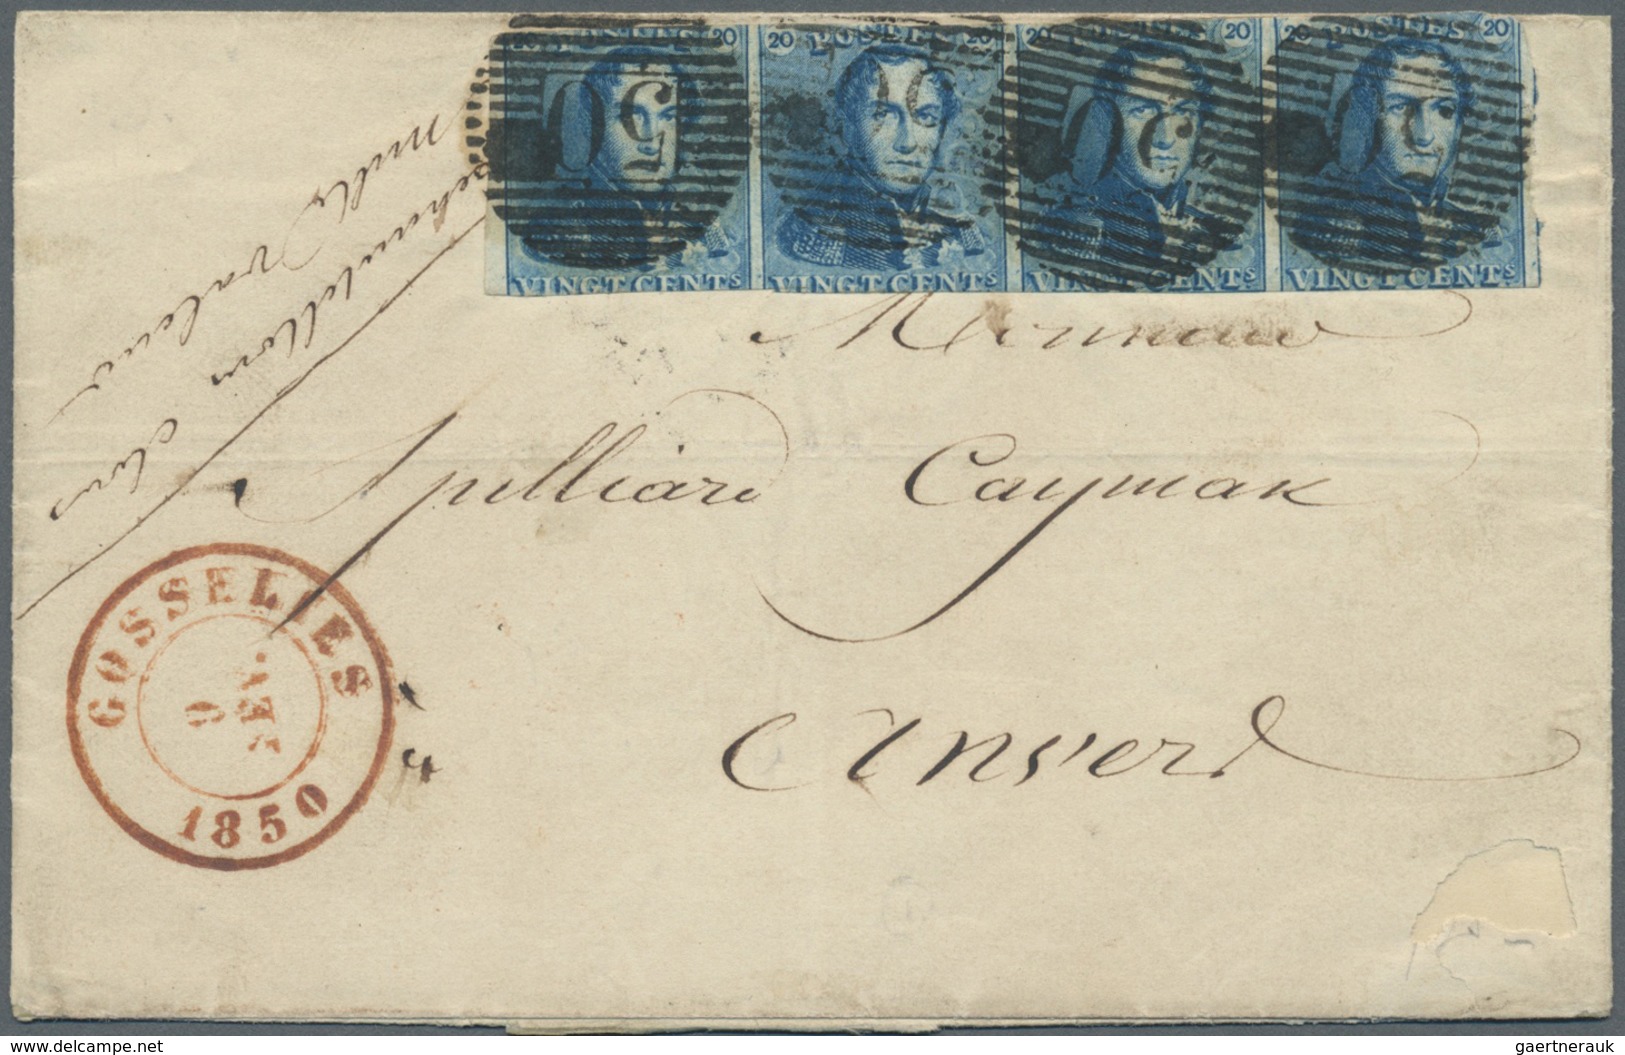 20 POSTES 20 20 POSTES 20 20 POSTES 20 20 POSTES 20
50 50 50 50
VINGT CENTS VINGT CENTS VINGT CENTS VINGT CENTS
echantillon clos
nulle valeur
Spilliard Caymax
Anvers
GOSSELIES
9
1850
www.delcampe.net
gaertnerauk